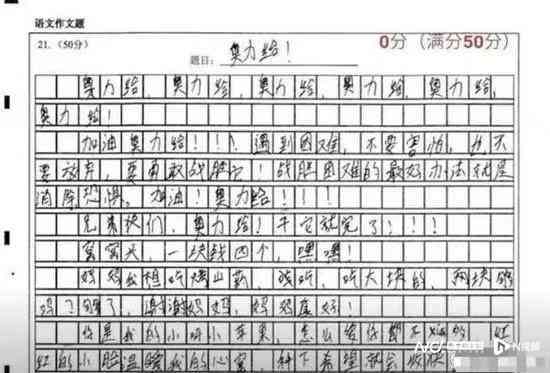 语文作文题
21.（50分）
0分（满分50分）
题目：奥力给！
奥力给，奥力给，奥力给，奥力给，奥力给，
奥力给！
加油奥力给！！！遇到困难，不要害怕，也不
要放弃，要勇敢战胜它！战胜困难的最好办法就是
消除恐惧，加油！奥力给！！！
兄弟们，奥力给！干它就完了！！！
窝窝头，一块钱四个，嘿嘿！
妈妈我想吃烤山药，戏吃，吃大块的，两块够
吗？够了，谢谢妈妈，妈妈真好！
你是我的小呀小苹果，怎么爱你都不嫌多，红
红的小脸温暖我的心窝，种下希望就会收获
N视频